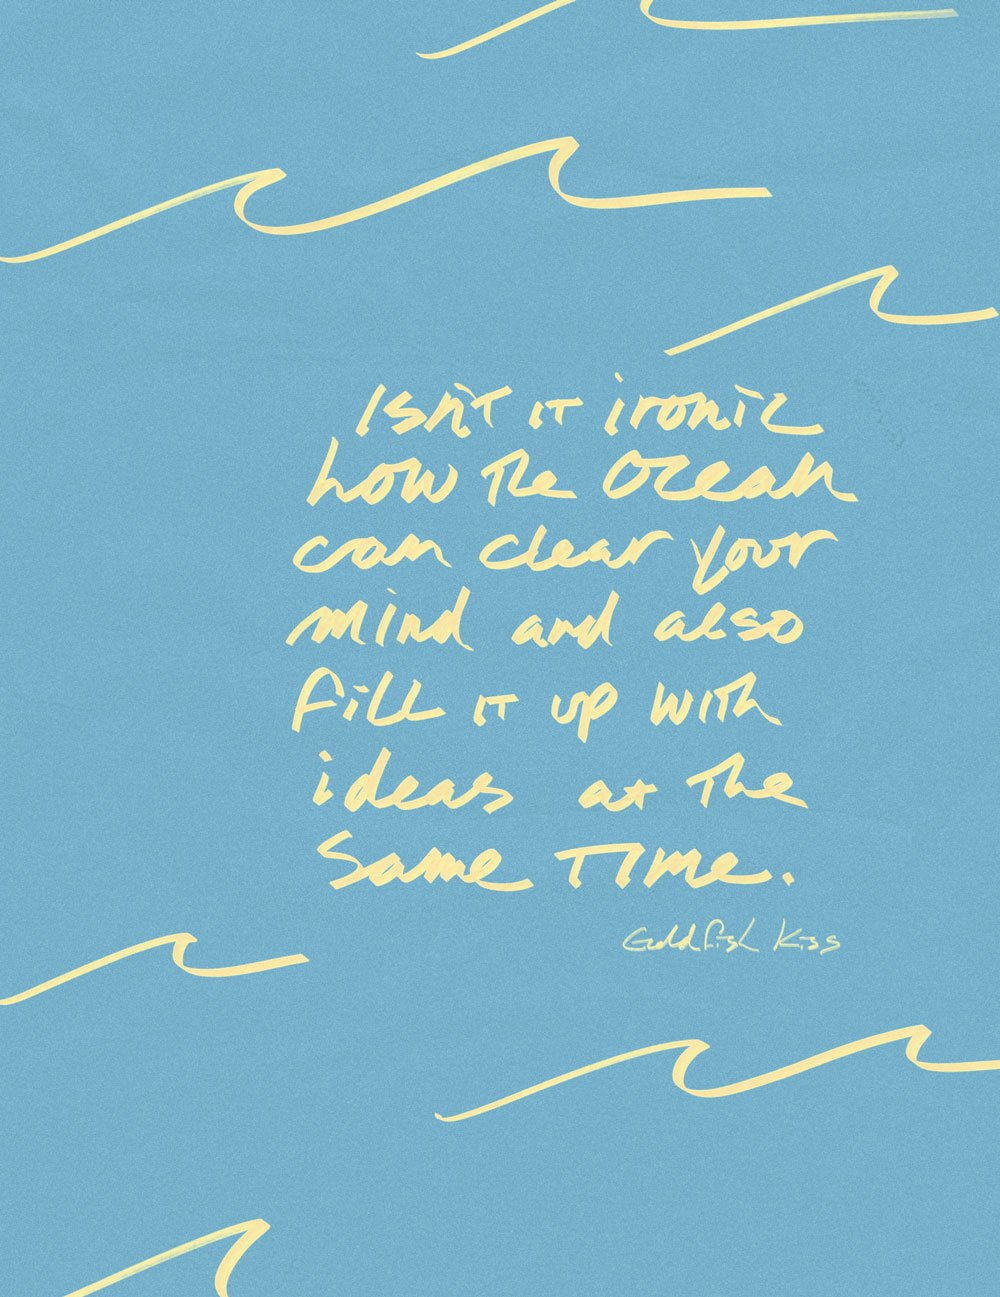 Isn't it ironic
how the ocean
can clear your
mind and also
fill it up with
ideas at the
same time.
Goldfish Kiss